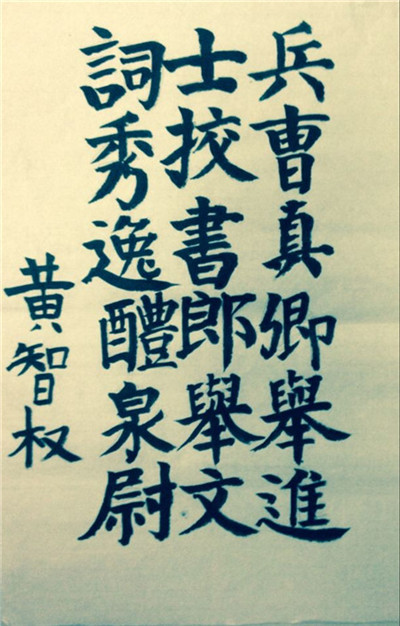 兵曹真卿舉進
士挍書郎舉文
詞秀逸醴泉尉
黄智权